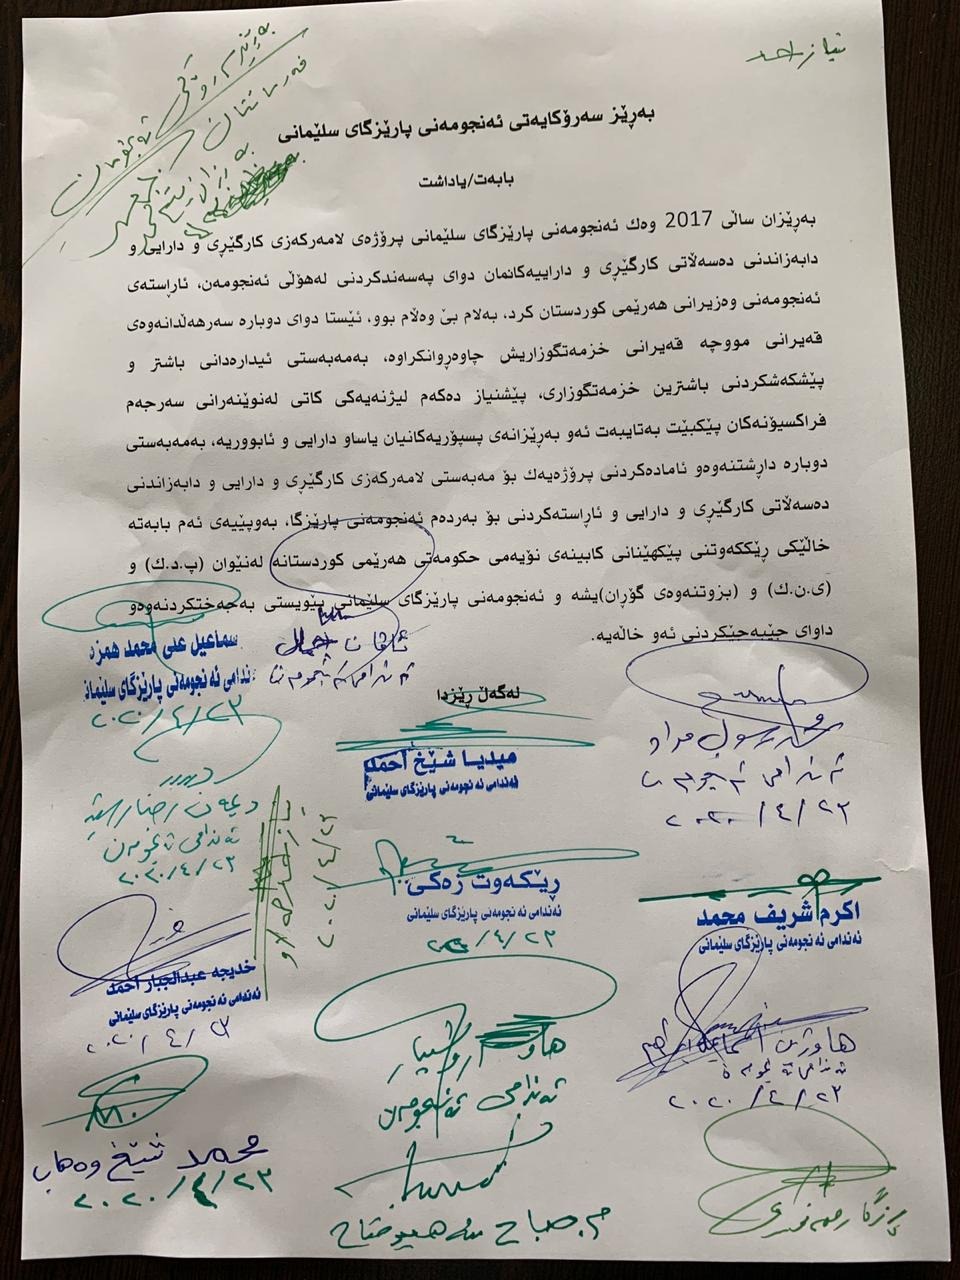 نیاز احمد
بەڕێز سەرۆکایەتی ئەنجومەنی پارێزگای سلێمانی
بابەت/یاداشت
بەڕێزان ساڵی 2017 وەك ئەنجومەنی پارێزگای سلێمانی پرۆژەی لامەرکەزی کارگێڕی و دارایی و
دابەزاندنی دەسەڵاتی کارگێڕی و داراییەکانمان دوای پەسەندکردنی لەهۆڵی ئەنجومەن، ئاراستەی
ئەنجومەنی وەزیرانی هەرێمی کوردستان کرد، بەلام بێ وەڵام بوو، ئێستا دوای دوبارە سەرهەڵدانەوەی
قەیرانی مووچە قەیرانی خزمەتگوزاریش چاوەڕوانکراوە، بەمەبەستی ئیدارەدانی باشتر و
پێشکەشکردنی باشترین خزمەتگوزاری، پێشنیاز دەکەم لیژنەیەکی کاتی لەنوێنەرانی سەرجەم
فراکسیۆنەکان پێکبێت بەتایبەت ئەو بەڕێزانەی پسپۆریەکانیان یاساو دارایی و ئابووریە، بەمەبەستی
دوبارە داڕشتنەوەو ئامادەکردنی پرۆژەیەك بۆ مەبەستی لامەرکەزی کارگێڕی و دارایی و دابەزاندنی
دەسەڵاتی کارگێڕی و دارایی و ئاراستەکردنی بۆ بەردەم ئەنجومەنی پارێزگا، بەوپێیەی ئەم بابەتە
خاڵێکی رێککەوتنی پێکهێنانی کابینەی نۆیەمی حکومەتی هەرێمی کوردستانە لەنێوان (پ.د.ك) و
(ی.ن.ك) و (بزوتنەوەی گۆڕان)یشە و ئەنجومەنی پارێزگای سلێمانی پێویستی بەجەختکردنەوەو
داوای جێبەجێکردنی ئەو خاڵەیە.
لەگەڵ رێزدا
سماعیل علی محمد همزە
ئەندامی ئە نجومەنی پارێزگای سلێمانی
٢٠٢٠/٤/٢٣
میدیا شێخ أحمد
ئەندامی ئە نجومەنی پارێزگای سلێمانی
٢٠٢٠/٤/٢٣
ئەندامی ئەنجومەن
٢٠٢٠/٤/٢٣
٢٠٢٠/٤/٢٣
ڕێکەوت زەکی
ئەندامی ئە نجومەنی پارێزگای سلێمانی
٢٠٢٠/٤/٢٣
اکرم شریف محمد
ئەندامی ئە نجومەنی پارێزگای سلێمانی
خدیجە عبدالجبار احمد
ئەندامی ئە نجومەنی پارێزگای سلێمانی
٢٠٢٠/٤/٢٣
ئەندامی ئەنجومەن
٢٠٢٠/٤/٢٣
محمد شێخ وەهاب
٢٠٢٠/٤/٢٣